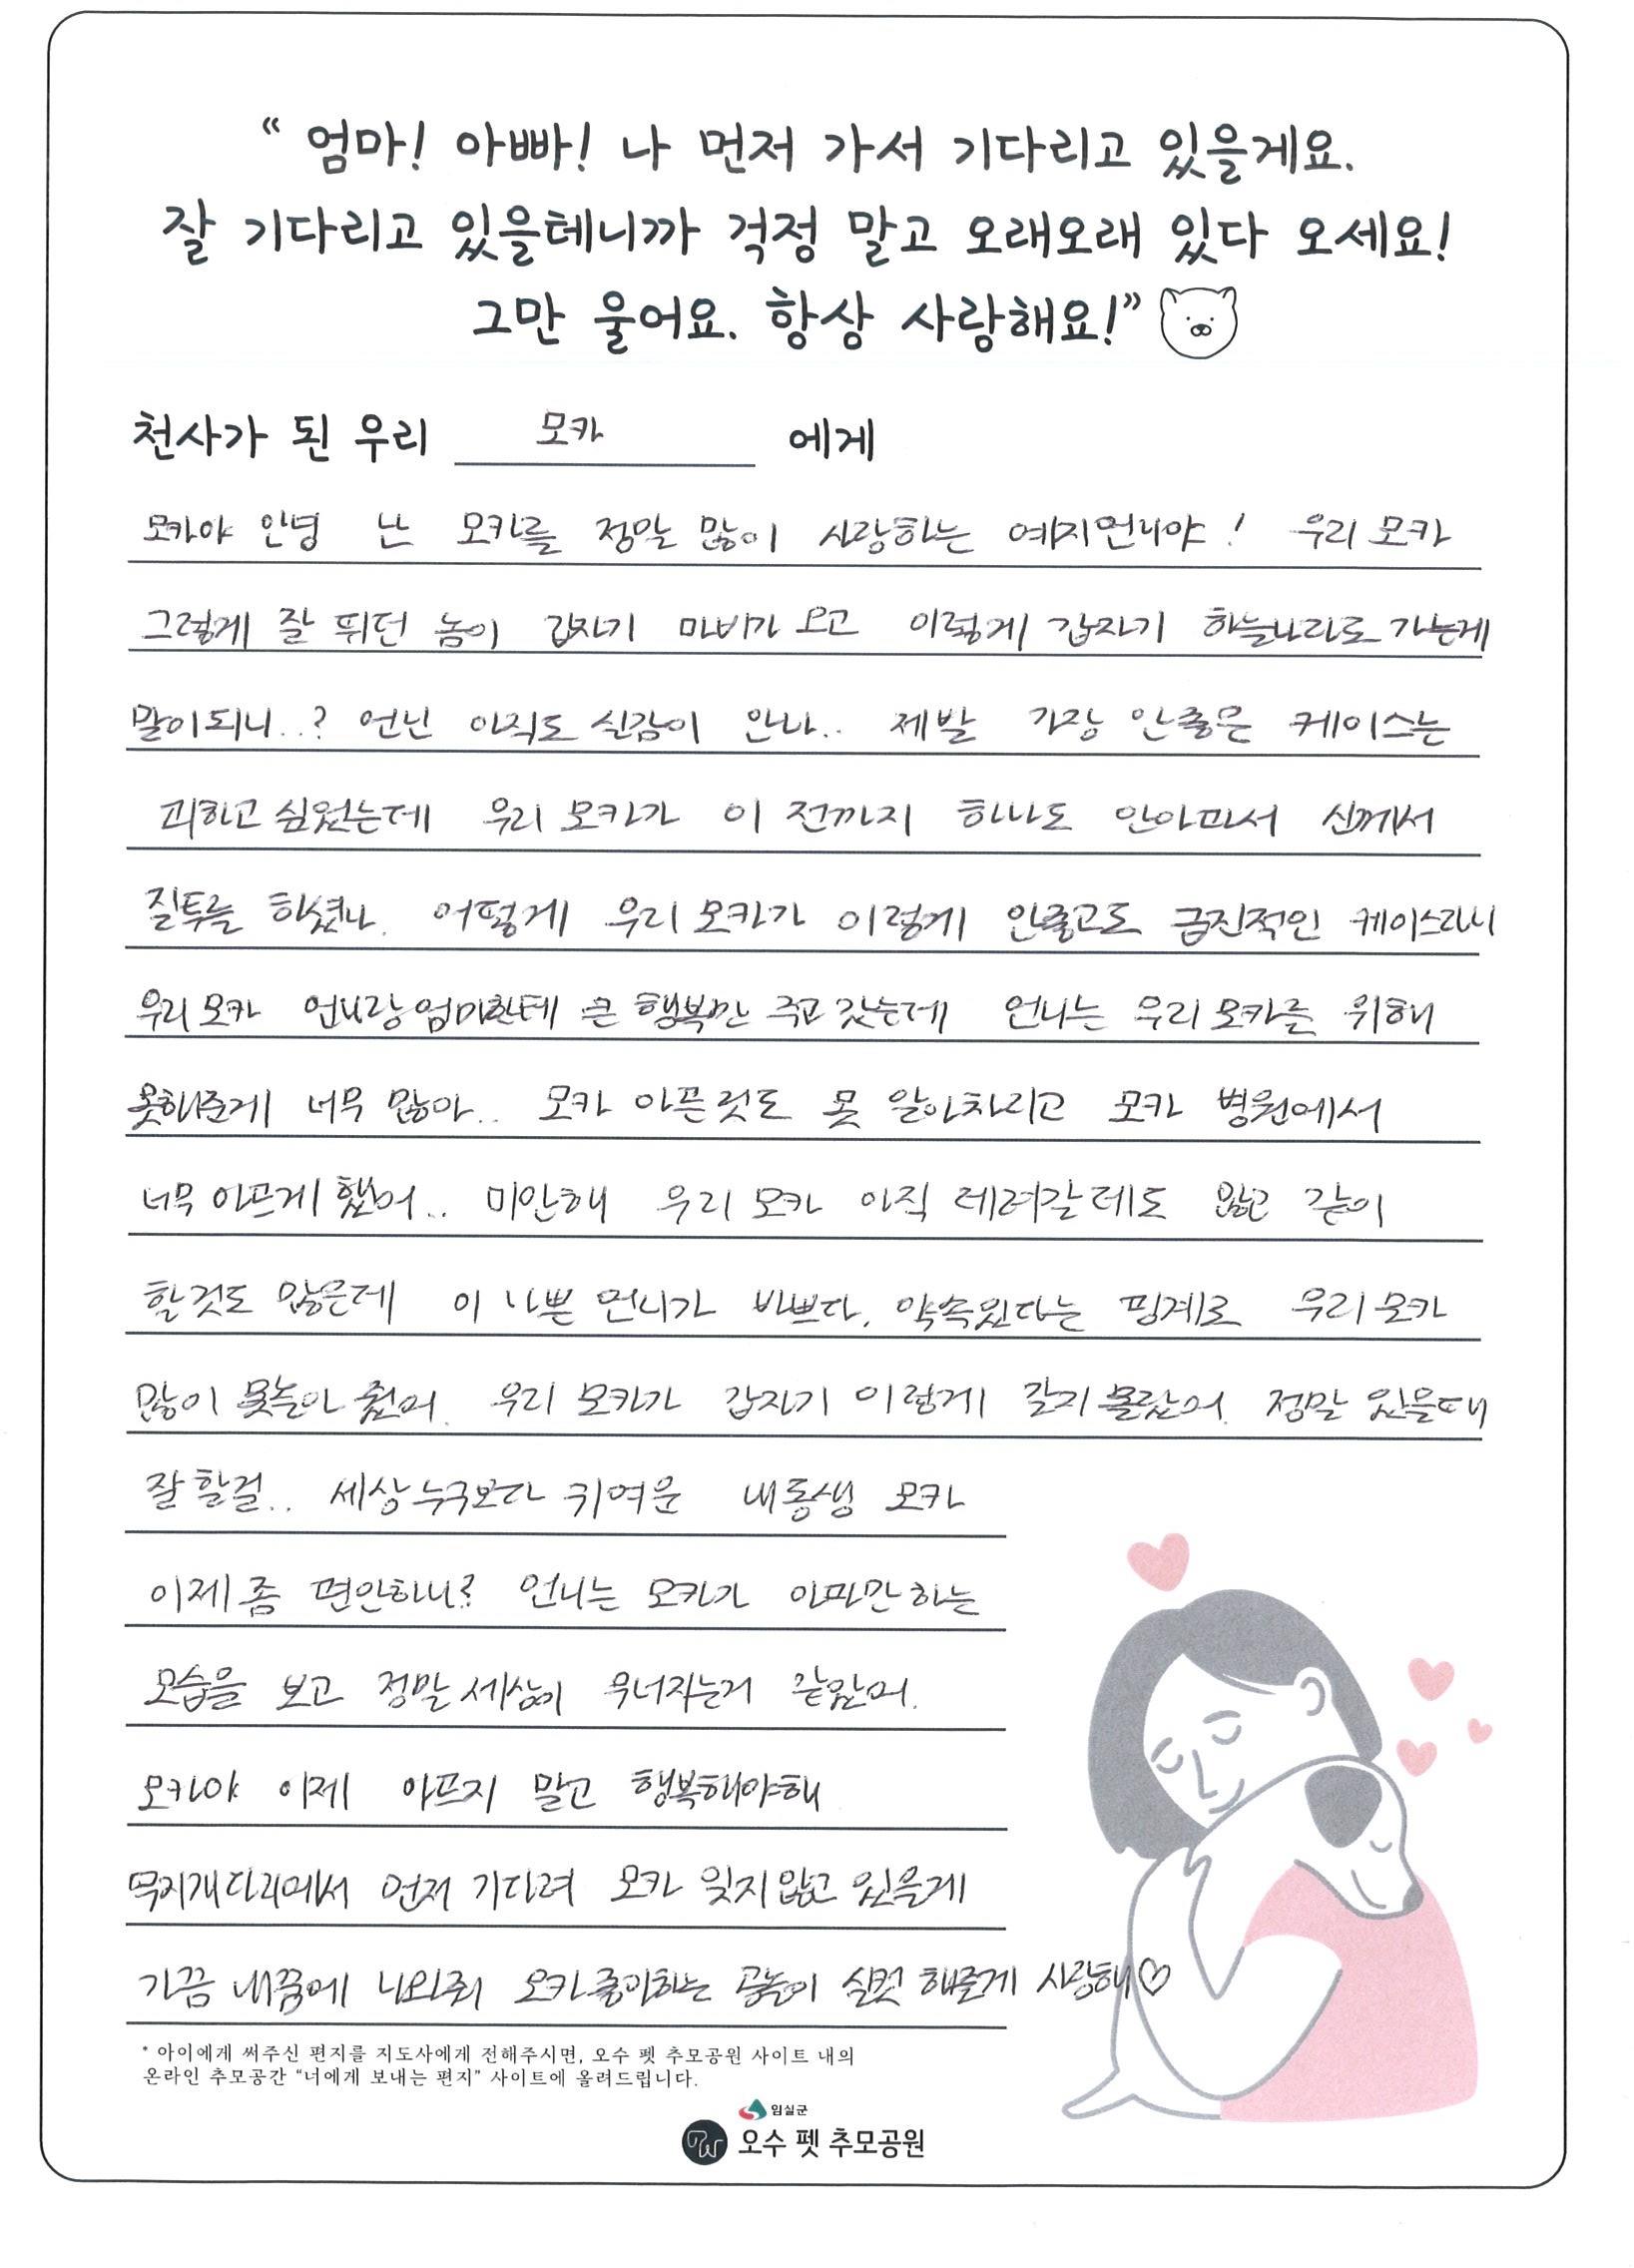 “ 엄마! 아빠! 나 먼저 가서 기다리고 있을게요.
잘 기다리고 있을테니까 걱정 말고 오래오래 있다 오세요!
그만 울어요. 항상 사랑해요!”
천사가 된 우리 모카 에게
모카야 안녕 난 모카를 정말 많이 사랑하는 예지언니야! 우리 모카
그렇게 잘 뛰던 놈이 갑자기 마비가 오고 이렇게 갑자기 하늘나라로 가는게
말이되니..? 언닌 아직도 실감이 안나.. 제발 가장 안좋은 케이스는
피하고 싶었는데 우리 모카가 이 전까지 하나도 안아파서 신께서
질투를 하셨나. 어떻게 우리 모카가 이렇게 안좋고도 급진적인 케이스라니
우리 모카 언니랑 엄마한테 큰 행복만 주고 갔는데 언니는 우리 모카를 위해
못해준게 너무 많아.. 모카 아픈것도 못 알아차리고 모카 병원에서
너무 아프게 했어.. 미안해 우리 모카 아직 데려갈데도 많고 같이
할것도 많은데 이 나쁜 언니가 바쁘다, 약속있다는 핑계로 우리 모카
많이 못놀아 줬어. 우리 모카가 갑자기 이렇게 갈지 몰랐어. 정말 있을때
잘 할걸.. 세상 누구보다 귀여운 내동생 모카
이제 좀 편안하니? 언니는 모카가 아파만 하는
모습을 보고 정말 세상이 무너지는거 같았어.
모카야 이제 아프지 말고 행복해야해
무지개다리에서 먼저 기다려 모카 잊지않고 있을게
가끔 내꿈에 나와줘 모카 좋아하는 공놀이 실컷 해줄게 사랑해♡
* 아이에게 써주신 편지를 지도사에게 전해주시면, 오수 펫 추모공원 사이트 내의
온라인 추모공간 “너에게 보내는 편지” 사이트에 올려드립니다.
임실군
오수 펫 추모공원